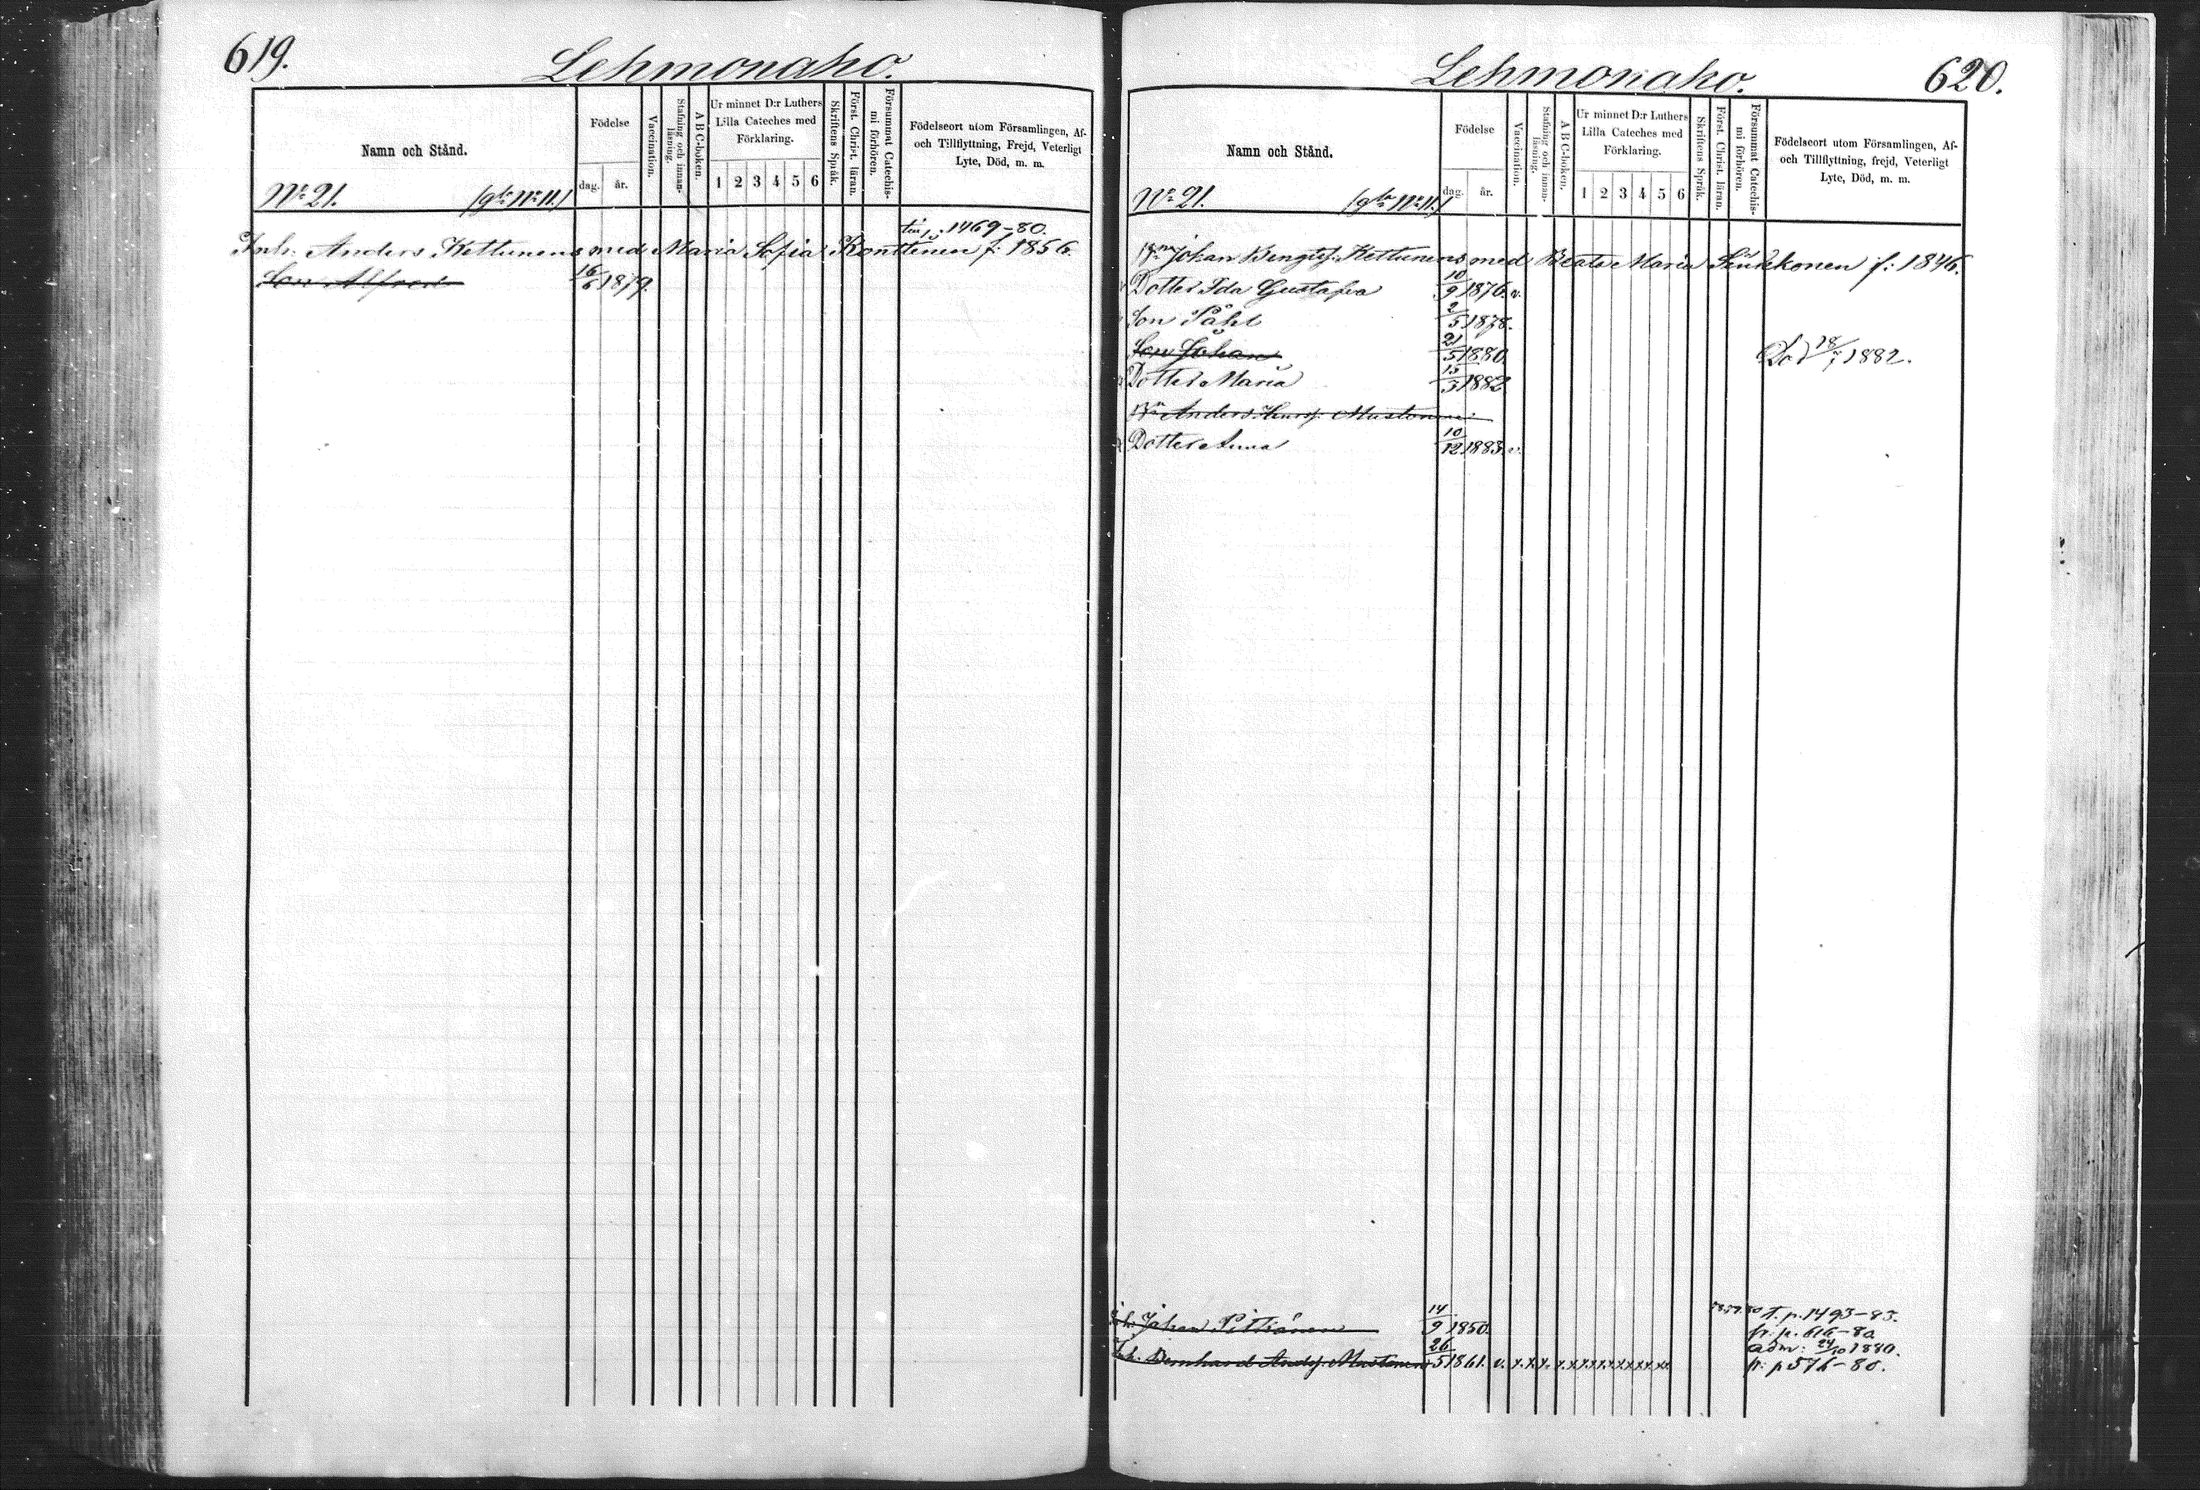 619.
Lehmonaho.
Namn och Stånd.
Födelse
dag. år.
Vaccination.
Stafning och innan-
läsning.
A B C-boken.
Ur minnet D:r Luthers
Lilla Cateches med
Förklaring.
1 2 3 4 5 6
Skriftens Språk.
Först. Christ. läran.
Försummat Catechis-
mi förhören.
Födelseort utom Församlingen, Af-
och Tillflyttning, Frejd, Veterligt
Lyte, Död, m. m.
No 21. (gla No 11.)
1469-80.
Inh. Anders Kettunens med Maria Sofia Konttinen f: 1856.
Son Alfred 16/6 1879.
Lehmonaho.
620.
Namn och Stånd.
Födelse
dag. år.
Vaccination.
Stafning och innan-
läsning.
A B C-boken.
Ur minnet D:r Luthers
Lilla Cateches med
Förklaring.
1 2 3 4 5 6
Skriftens Språk.
Först. Christ. läran.
Försummat Catechis-
mi förhören.
Födelseort utom Församlingen, Af-
och Tillflyttning, frejd, Veterligt
Lyte, Död, m. m.
No 21. (gla No 11.)
Johan Bengtsf. Kettunens med Beata Maria Sirkkonen f: 1846.
Dotter Ida Gustafva 10/9 1876. v.
Son Påhl 2/5 1878.
Son Johan 21/5 1880 Död 18/7 1882.
Dotter Maria 15/5 1882
Anders Mustonen
Dotter Anna 10/12 1883. v.
Inh. Johan Pitkänen 14/9 1850. 78.79.80 t. p. 1493-83.
fr. p. 616-80
adm: 24/10 1880.
Inh. Bernhard Andsf. Mustonen 26/5 1861. v. x. x. x. x x x x x x x x x fr. p 576-80.